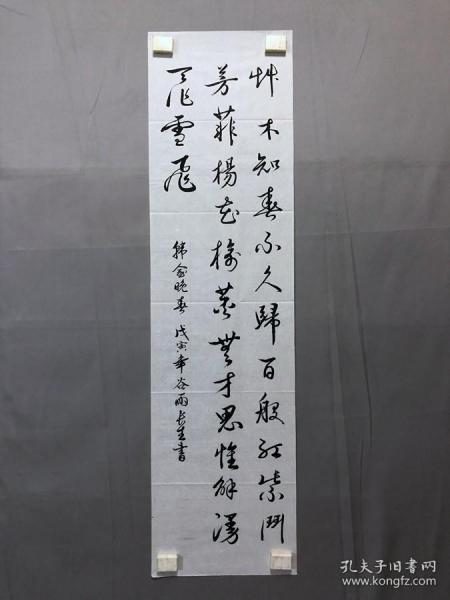 艸木知春不久歸百般紅紫鬥
芳菲楊花榆莢無才思惟解漫
天作雪飛
韓愈晚春 戊寅年谷雨长生書
孔夫子旧书网
www.kongfz.com